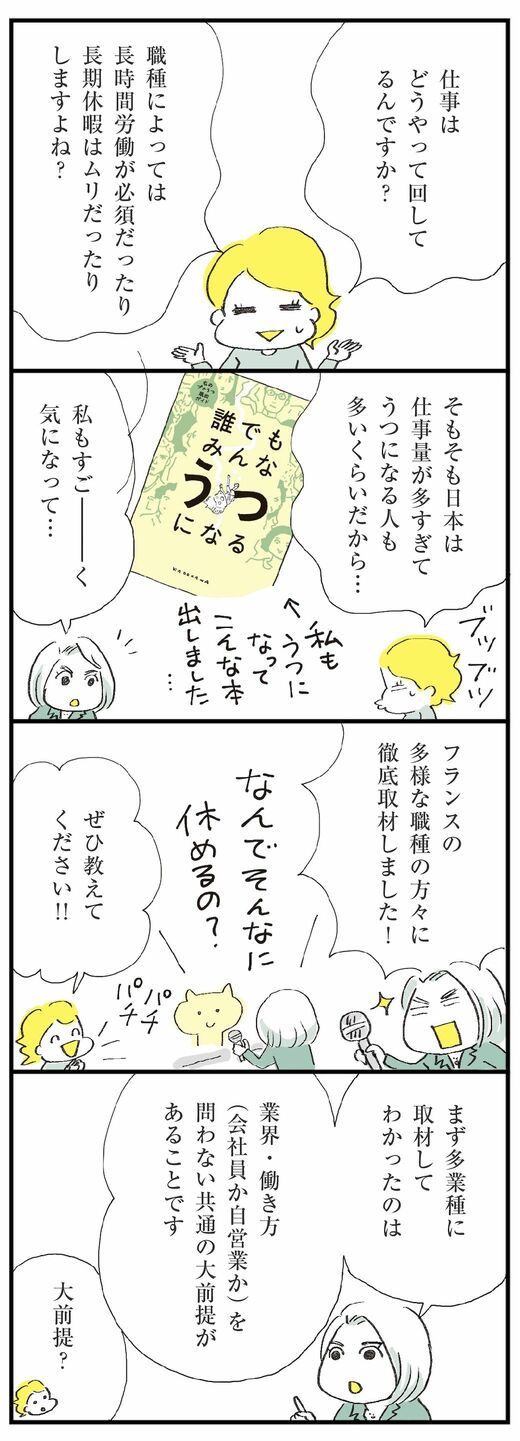 仕事は
どうやって回して
るんですか？
職種によっては
長時間労働が必須だったり
長期休暇はムリだったり
しますよね？
そもそも日本は
仕事量が多すぎて
うつになる人も
多いくらいだから…
ブツブツ
誰でも
みんな
うつ
になる
KADOKAWA
←私も
うつに
なって
こんな本
出しました
…
私もすご――く
気になって…
フランスの
多様な職種の方々に
徹底取材しました！
なんでそんなに
休めるの？
ぜひ教えて
ください!!
パチ
パチ
まず多業種に
取材して
わかったのは
業界・働き方
（会社員か自営業か）を
問わない共通の大前提が
あることです
大前提？